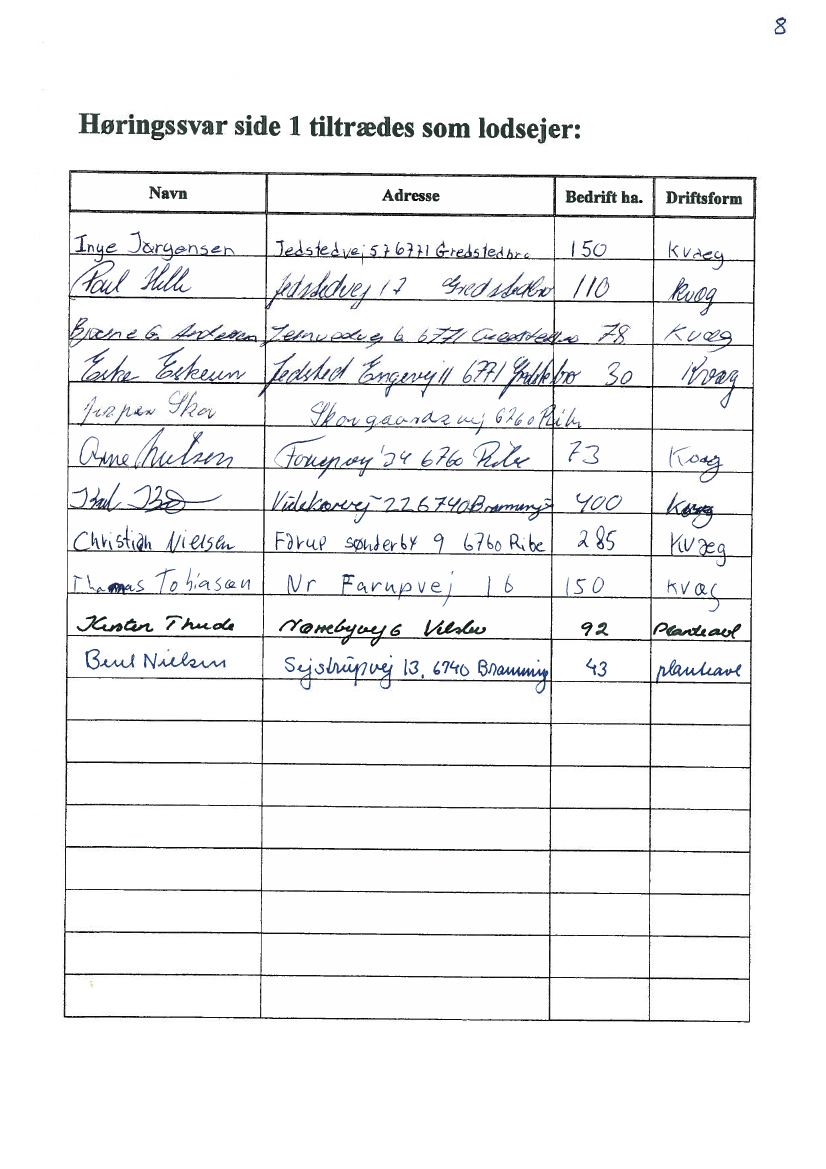 8
Høringssvar side 1 tiltrædes som lodsejer:
Navn Adresse Bedrift ha. Driftsform
Inge Jørgensen Jedstedvej 57 6771 Gredstedbro 150 Kvæg
Poul Jedstedvej 17 Gredstedbro 110 Kvæg
Bjarne G. Andersen 6 6771 Gredstedbro 78 Kvæg
Eske Eskesen Jedsted Engevej 11 6771 30 Kvæg
Skov Skovgaardsvej 6760 Ribe
Arne Nielsen 6760 Ribe 73 Kvæg
22 6740 Bramming 400 Kvæg
Christian Nielsen Farup Sønderby 9 6760 Ribe 285 Kvæg
Thomas Tobiasen Nr Farupvej 16 150 Kvæg
Kirsten Thude Nørrebyvej 6 Vilslev 92 Planteavl
Bent Nielsen Sejstrupvej 13, 6740 Bramming 43 planteavl